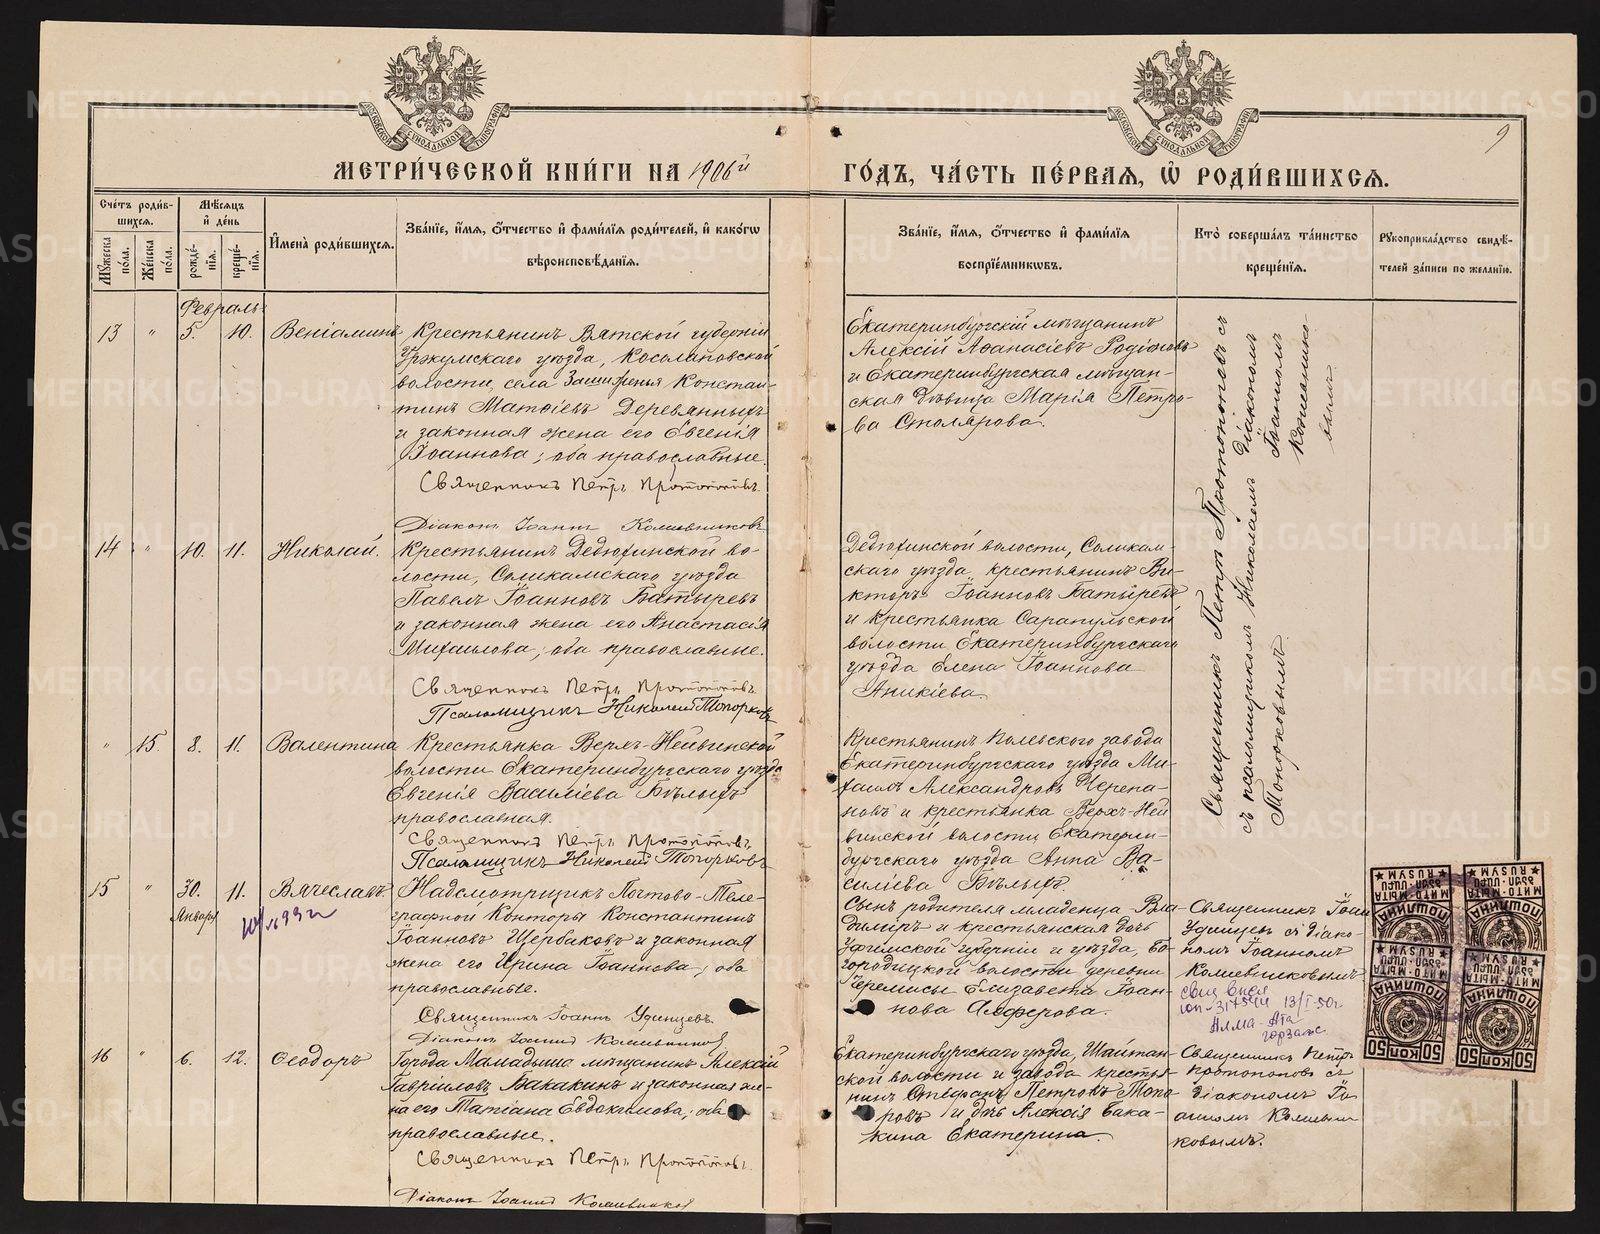 МОСКОВСКОЙ СѴНОДАЛЬНОЙ ТИПОГРАФІИ
МОСКОВСКОЙ СѴНОДАЛЬНОЙ ТИПОГРАФІИ
9
МЕТРИ́ЧЕСКОЙ КНИ́ГИ НА 1906й ГО́ДЪ, ЧА́СТЬ ПЕ́РВАЯ, Ѡ҆ РОДИ́ВШИХСЯ.
Сче́тъ роди́в-
шихся.
Мꙋ́жеска по́ла.
Же́нска по́ла.
Мѣ́сяцъ
и҆ де́нь
рожде́-
нїя.
креще́-
нїя.
И҆мена̀ роди́вшихся.
Зва́нїе, и҆́мя, ѻ҆́тчество и҆ фами́лїя роди́телей, и҆ како́гѡ
вѣроисповѣ́данїя.
Зва́нїе, и҆́мя, ѻ҆́тчество и҆ фами́лїя
воспрїе́мникѡвъ.
Кто̀ соверша́лъ та́инство
креще́нїя.
Рꙋкоприкла́дство свидѣ́-
телей за́писи по жела́нїю.
Февраль
13 " 5. 10. Веніаминъ
Крестьянинъ Вятской губерніи
Уржумскаго уѣзда, Косолаповской
волости, села Констан-
тинъ Матѳіевъ Деревянныхъ
и законная жена его Евгенія
Іоаннова; оба православные.
Священникъ Петръ Протопоповъ.
Діаконъ Іоаннъ Комшевниковъ
Екатеринбургскій мѣщанинъ
Алексій Аѳанасіевъ Родіоновъ
и Екатеринбургская мѣщан-
ская дѣвица Марія Петро-
ва Столярова.
Священникъ Петръ Протопоповъ с
съ псаломщикомъ Николаемъ діакономъ
Топорковымъ. Іоанномъ
14 " 10. 11. Николай.
Крестьянинъ Дедюхинской во-
лости, Соликамскаго уѣзда
Павелъ Іоанновъ Батыревъ
и законная жена его Анастасія
Михаилова; оба православные.
Священникъ Петръ Протопоповъ.
Псаломщикъ Николай Топорковъ
Дедюхинской волости, Соликам-
скаго уѣзда, крестьянинъ Ви-
кторъ Іоанновъ Батыревъ
и крестьянка Сарапульской
волости Екатеринбургскаго
уѣзда Елена Іоаннова
Аникіева.
" 15. 8. 11. Валентина
Крестьянка Верхъ-Нейвинской
волости Екатеринбургскаго уѣзда
Евгенія Василіева Бѣлыхъ
православная.
Священникъ Петръ Протопоповъ.
Псаломщикъ Николай Топорковъ
Крестьянинъ Полевскаго завода
Екатеринбургскаго уѣзда Ми-
хаилъ Александровъ Черепа-
новъ и крестьянка Верхъ-Ней-
винской волости Екатерин-
бургскаго уѣзда Анна Ва-
силіева Бѣлыхъ.
15 " 30. 11. Вячеславъ.
Январь
Надсмотрщикъ Почтово-Теле-
графной Конторы Константинъ
Іоанновъ Щербаковъ и законная
жена его Ирина Іоаннова; оба
православные.
Священникъ Іоаннъ Удинцевъ.
Діаконъ Іоаннъ Комшевниковъ
Сынъ родителя младенца Вла-
диміръ и крестьянская дочь
Уфимской губерніи и уѣзда, Бо-
городицкой волости деревни
Черемисы Елизавета Іоан-
нова Алферова.
Священникъ Іоан
Удинцевъ съ діако-
номъ Іоанномъ
Комшевниковымъ
13/I-50г
Алма-Ата
горзагс.
ПОШЛИНА
50 КОП 50
16 " 6. 12. Ѳеодоръ
Города Мамадыша мѣщанинъ Алексій
Гавріиловъ Бакакинъ и законная же-
на его Татіана Евдокимова; оба
православные.
Священникъ Петръ Протопоповъ.
Діаконъ Іоаннъ Комшевниковъ
Екатеринбургскаго уѣзда, Шайтан-
ской волости и завода крестья-
нинъ Стефанъ Петровъ Топо-
ровъ и дочь Алексія Бака-
кина Екатерина.
Священникъ Петръ
Протопоповъ съ
діакономъ Іо-
анномъ Комшевни-
ковымъ.
METRIKI.GASO-URAL.RU